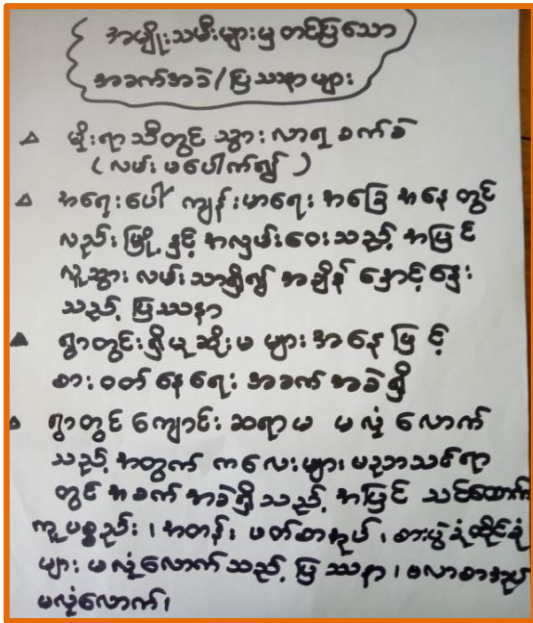 အမျိုးသမီးများမှတင်ပြသော
အခက်အခဲ/ပြဿနာများ
△ မိုးရာသီတွင် သွားလာရခက်ခဲ
(လမ်းမပေါက်၍)
△ အရေးပေါ် ကျန်းမာရေး အခြေအနေတွင်
လည်း မြို့နှင့် အလှမ်းဝေးသည့် အပြင်
လူသွားလမ်းသာရှိ၍ အချိန် နှောင့်နှေး
သည့် ပြဿနာ
▲ ရွာတွင်းရှိမုဆိုးမ များအနေဖြင့်
စားဝတ်နေရေး အခက်အခဲရှိ
△ ရွာတွင် ကျောင်းဆရာမ မလုံလောက်
သည့်အတွက် ကလေးများ ပညာသင်ရာ
တွင် အခက်အခဲရှိသည့် အပြင် သင်ထောက်
ကူပစ္စည်း၊ အတန်း ဖတ်စာအုပ်၊ စားပွဲခုံထိုင်ခုံ
များ မလုံလောက်သည့် ပြဿနာ၊ ဗလာစာအုပ်
မလုံလောက်၊